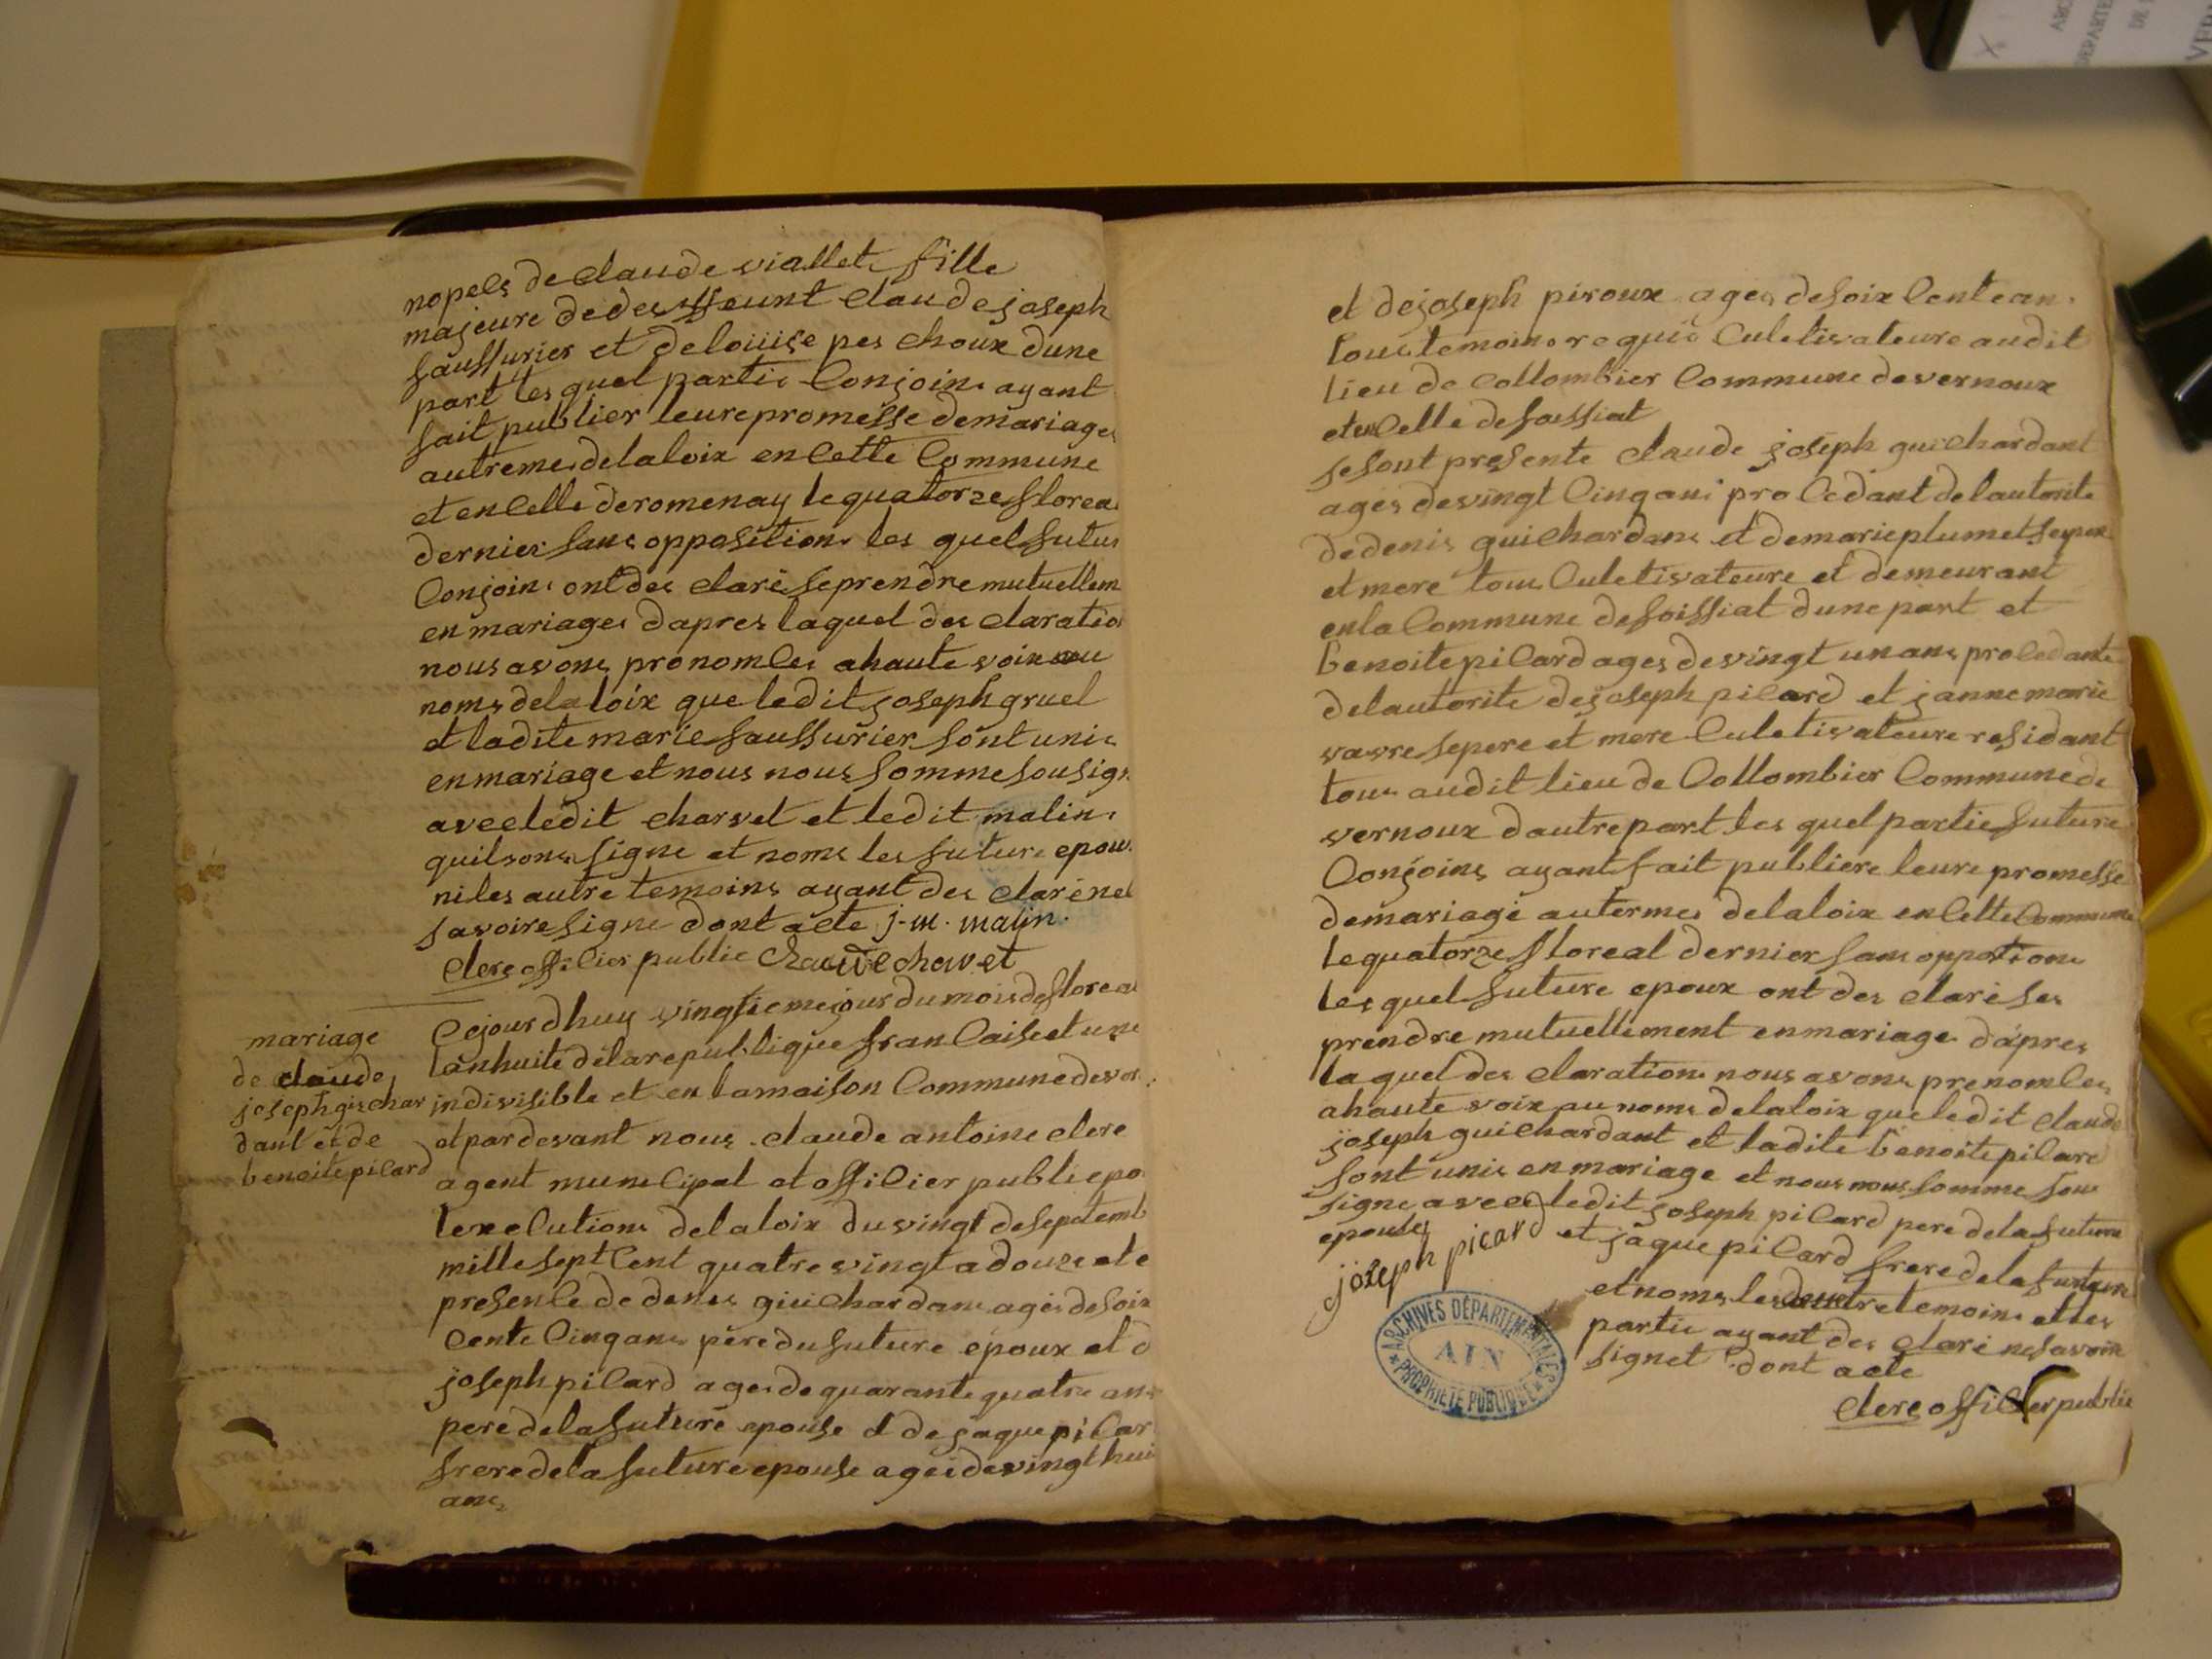 nopces de claude viallet fille
majeure de desffeunt claude joseph
faussurier et de loiiise pes choux dune
part les quel partie Conjoin ayant
fait publier leure promesse de mariage
autreme de la loix en Cette Commune
et en Celle de romenay le quatorze florea
dernier sans opposition les quel futur
Conjoin ont des claré se prendre mutuellem
en mariage dapres laquel des claratio
nous avons pronomces a haute voix au
noms de la loix que ledit joseph gruel
et ladite marie faussurier sont unis
en mariage et nous nous somme sousign
avec ledit charvet et ledit malin
quilsons signe et noms les future epou
ni les autre temoins ayant des claré ne
savoire signe dont acte j-m. malin.
clerc officier public chavet
Cejourdhuy vingtieme jour du mois de florea
lan huite de la republique francaise et une
indivisible et en la maison Commune de ver
et par devant nous claude antoine clerc
agent municipal et officier public po
lexecution de la loix du vingt de septemb
mille sept Cent quatre vingt a douze et e
presence de denis guichardans ages de soix
cente Cinq ans père du future époux et d
joseph picard ages de quarante quatre ans
pere de la future epouse et de jaque picar
frere de la future epouse ages de vingt hui
ans
mariage
de claude
joseph gischar
dant et de
benoite picard
et de joseph piroux ages de soixcente ans
tous temoins requis Culetivateure audit
lieu de Collombier Commune de vernoux
et en Celle de foissiat
se sont presente claude joseph guichardant
ages de vingt Cinq ans procedant de lautorite
de denis guichardans et de marie plumet se pere
et mere tous Culetivateure et demeurant
en la Commune de foissiat dune part et
benoite picard ages de vingt un ans procedante
de lautorite de joseph picard et janne marie
vavre se pere et mere Culetivateure residant
tous audit lieu de Collombier Commune de
vernoux dautre part les quel partie future
Conjoins ayant fait publiere leure promesse
de mariage au termes de la loix en Cette Commune
le quatorze floreal dernier sans oppotions
les quel future epoux ont des claré ses
prendre mutuellement en mariage dápres
la quel des clarations nous avons prenomces
a haute voix au noms de la loix que ledit claude
joseph guichardant et ladite benoite picard
sont unis en mariage et nous nous somme sou
signe avec ledit joseph picard pere de la future
epouse et jaque picard frere de la future
joseph picard
et noms les autre temoins et les
partie ayant des claré ne savoire
signet dont acte
clerc officier public
ARCHIVES DÉPARTEMENTALES
AIN
PROPRIÉTÉ PUBLIQUE